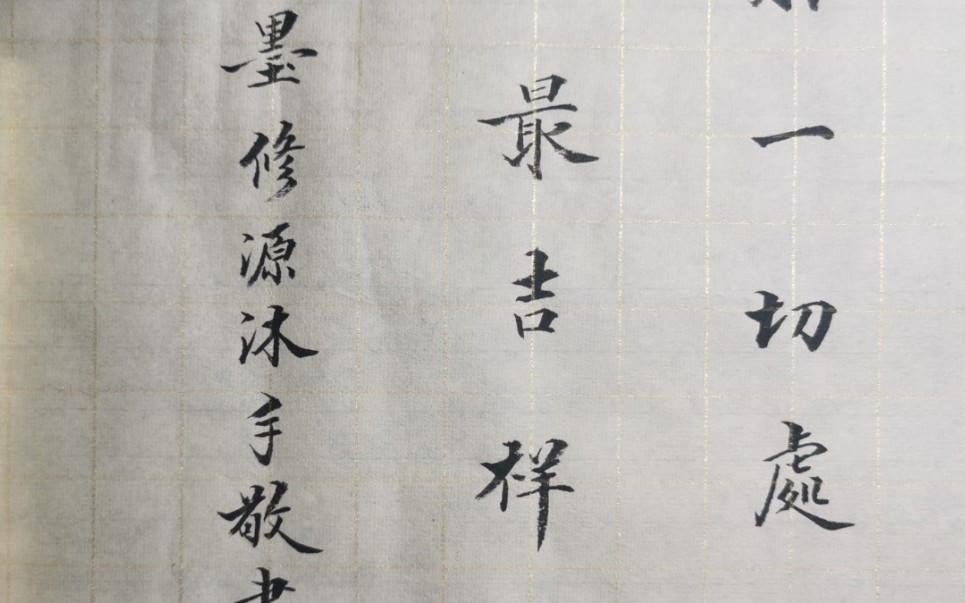 一切處
最吉祥
墨修源沐手敬書